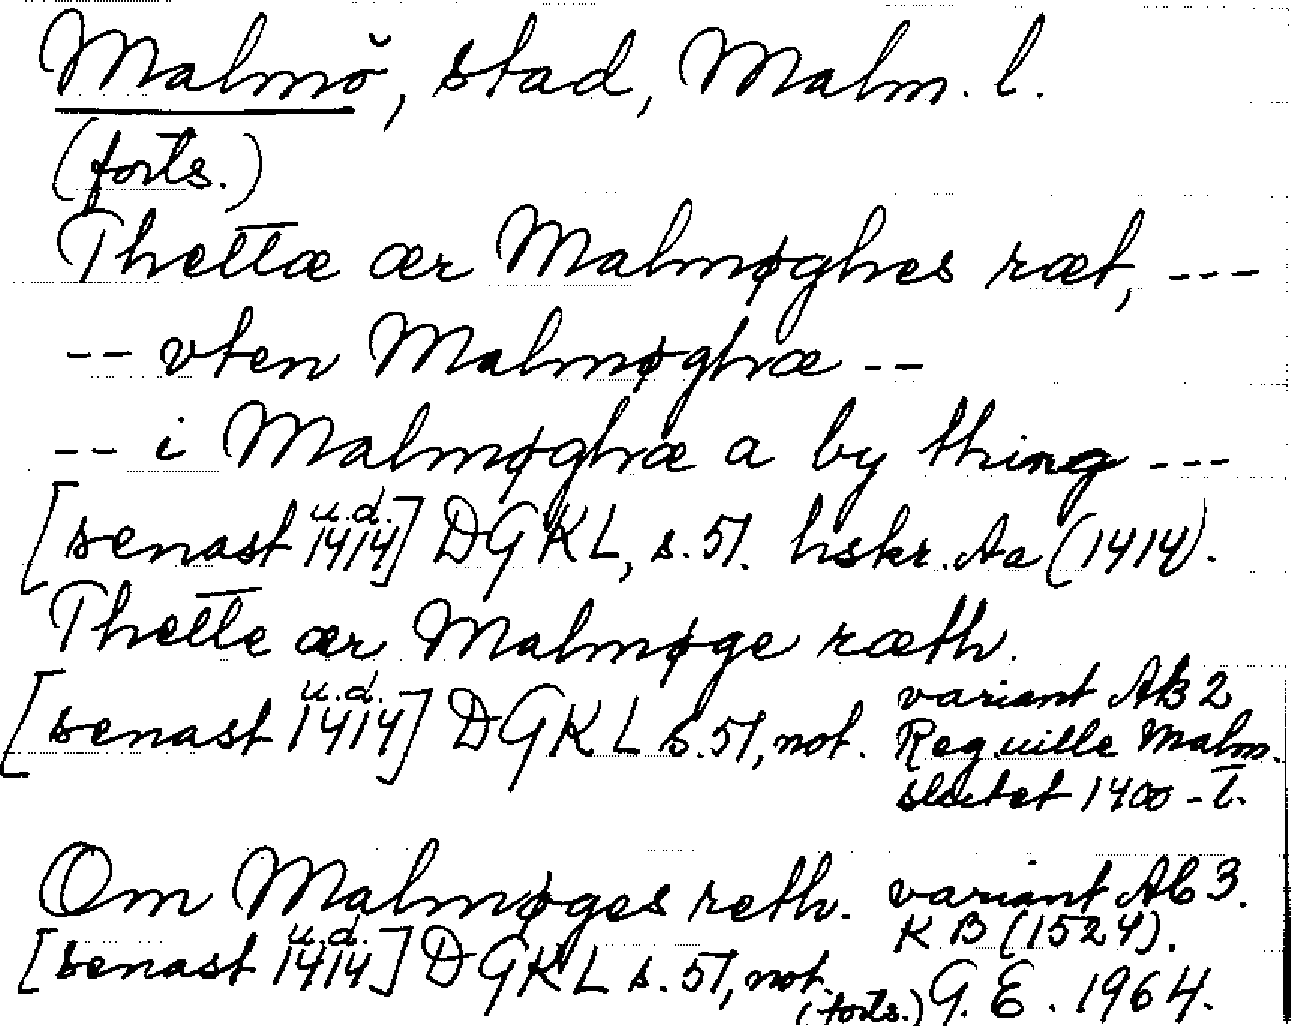 Malmö, stad, Malm. l.
(forts.)
Thettæ ær Malmøghes ræt, ---
-- vten Malmøghæ --
-- i Malmøghæ a by thing ---
[senast u.d. 1414] DGKL, s. 51. hskr. Aa (1414).
Thette ær Malmøge ræth.
[senast u.d. 1414] DGKL s. 51, not. variant Ab 2
Reg. uille Malm.
slutet 1400-t.
Om Malmøges reth. variant Ab 3.
KB (1524).
[senast u.d. 1414] DGKL s. 51, not.
(forts.) G. E. 1964.